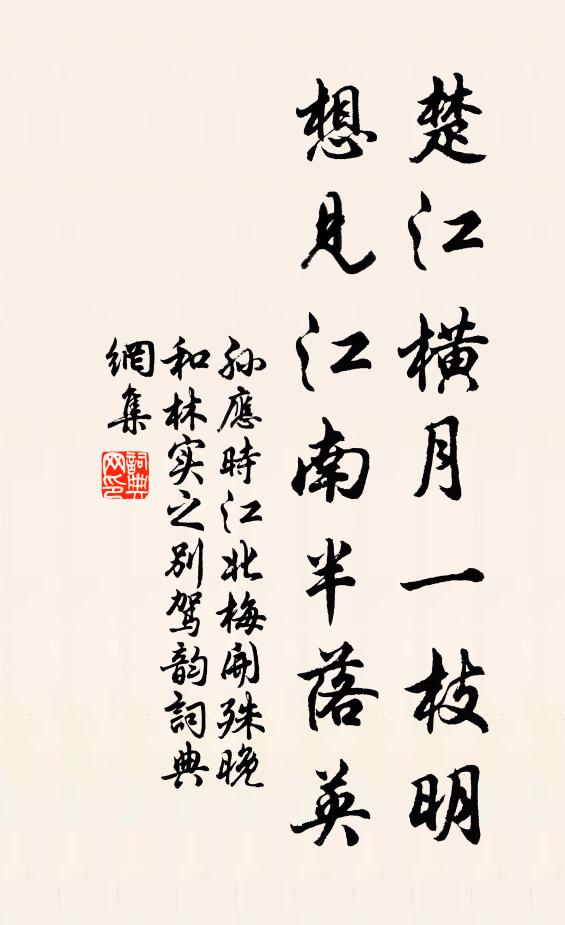 楚江横月一枝明
想见江南半落英
孙應時江北梅開殊晚
和林实之别驾韵詞典
網集
詞典網印